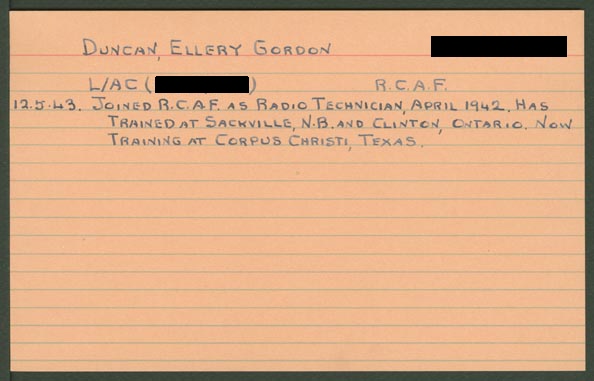 DUNCAN, ELLERY GORDON
L/AC ( ) R.C.A.F.
12.5.43. JOINED R.C.A.F. AS RADIO TECHNICIAN, APRIL 1942. HAS
TRAINED AT SACKVILLE, N.B. AND CLINTON, ONTARIO. NOW
TRAINING AT CORPUS CHRISTI, TEXAS.